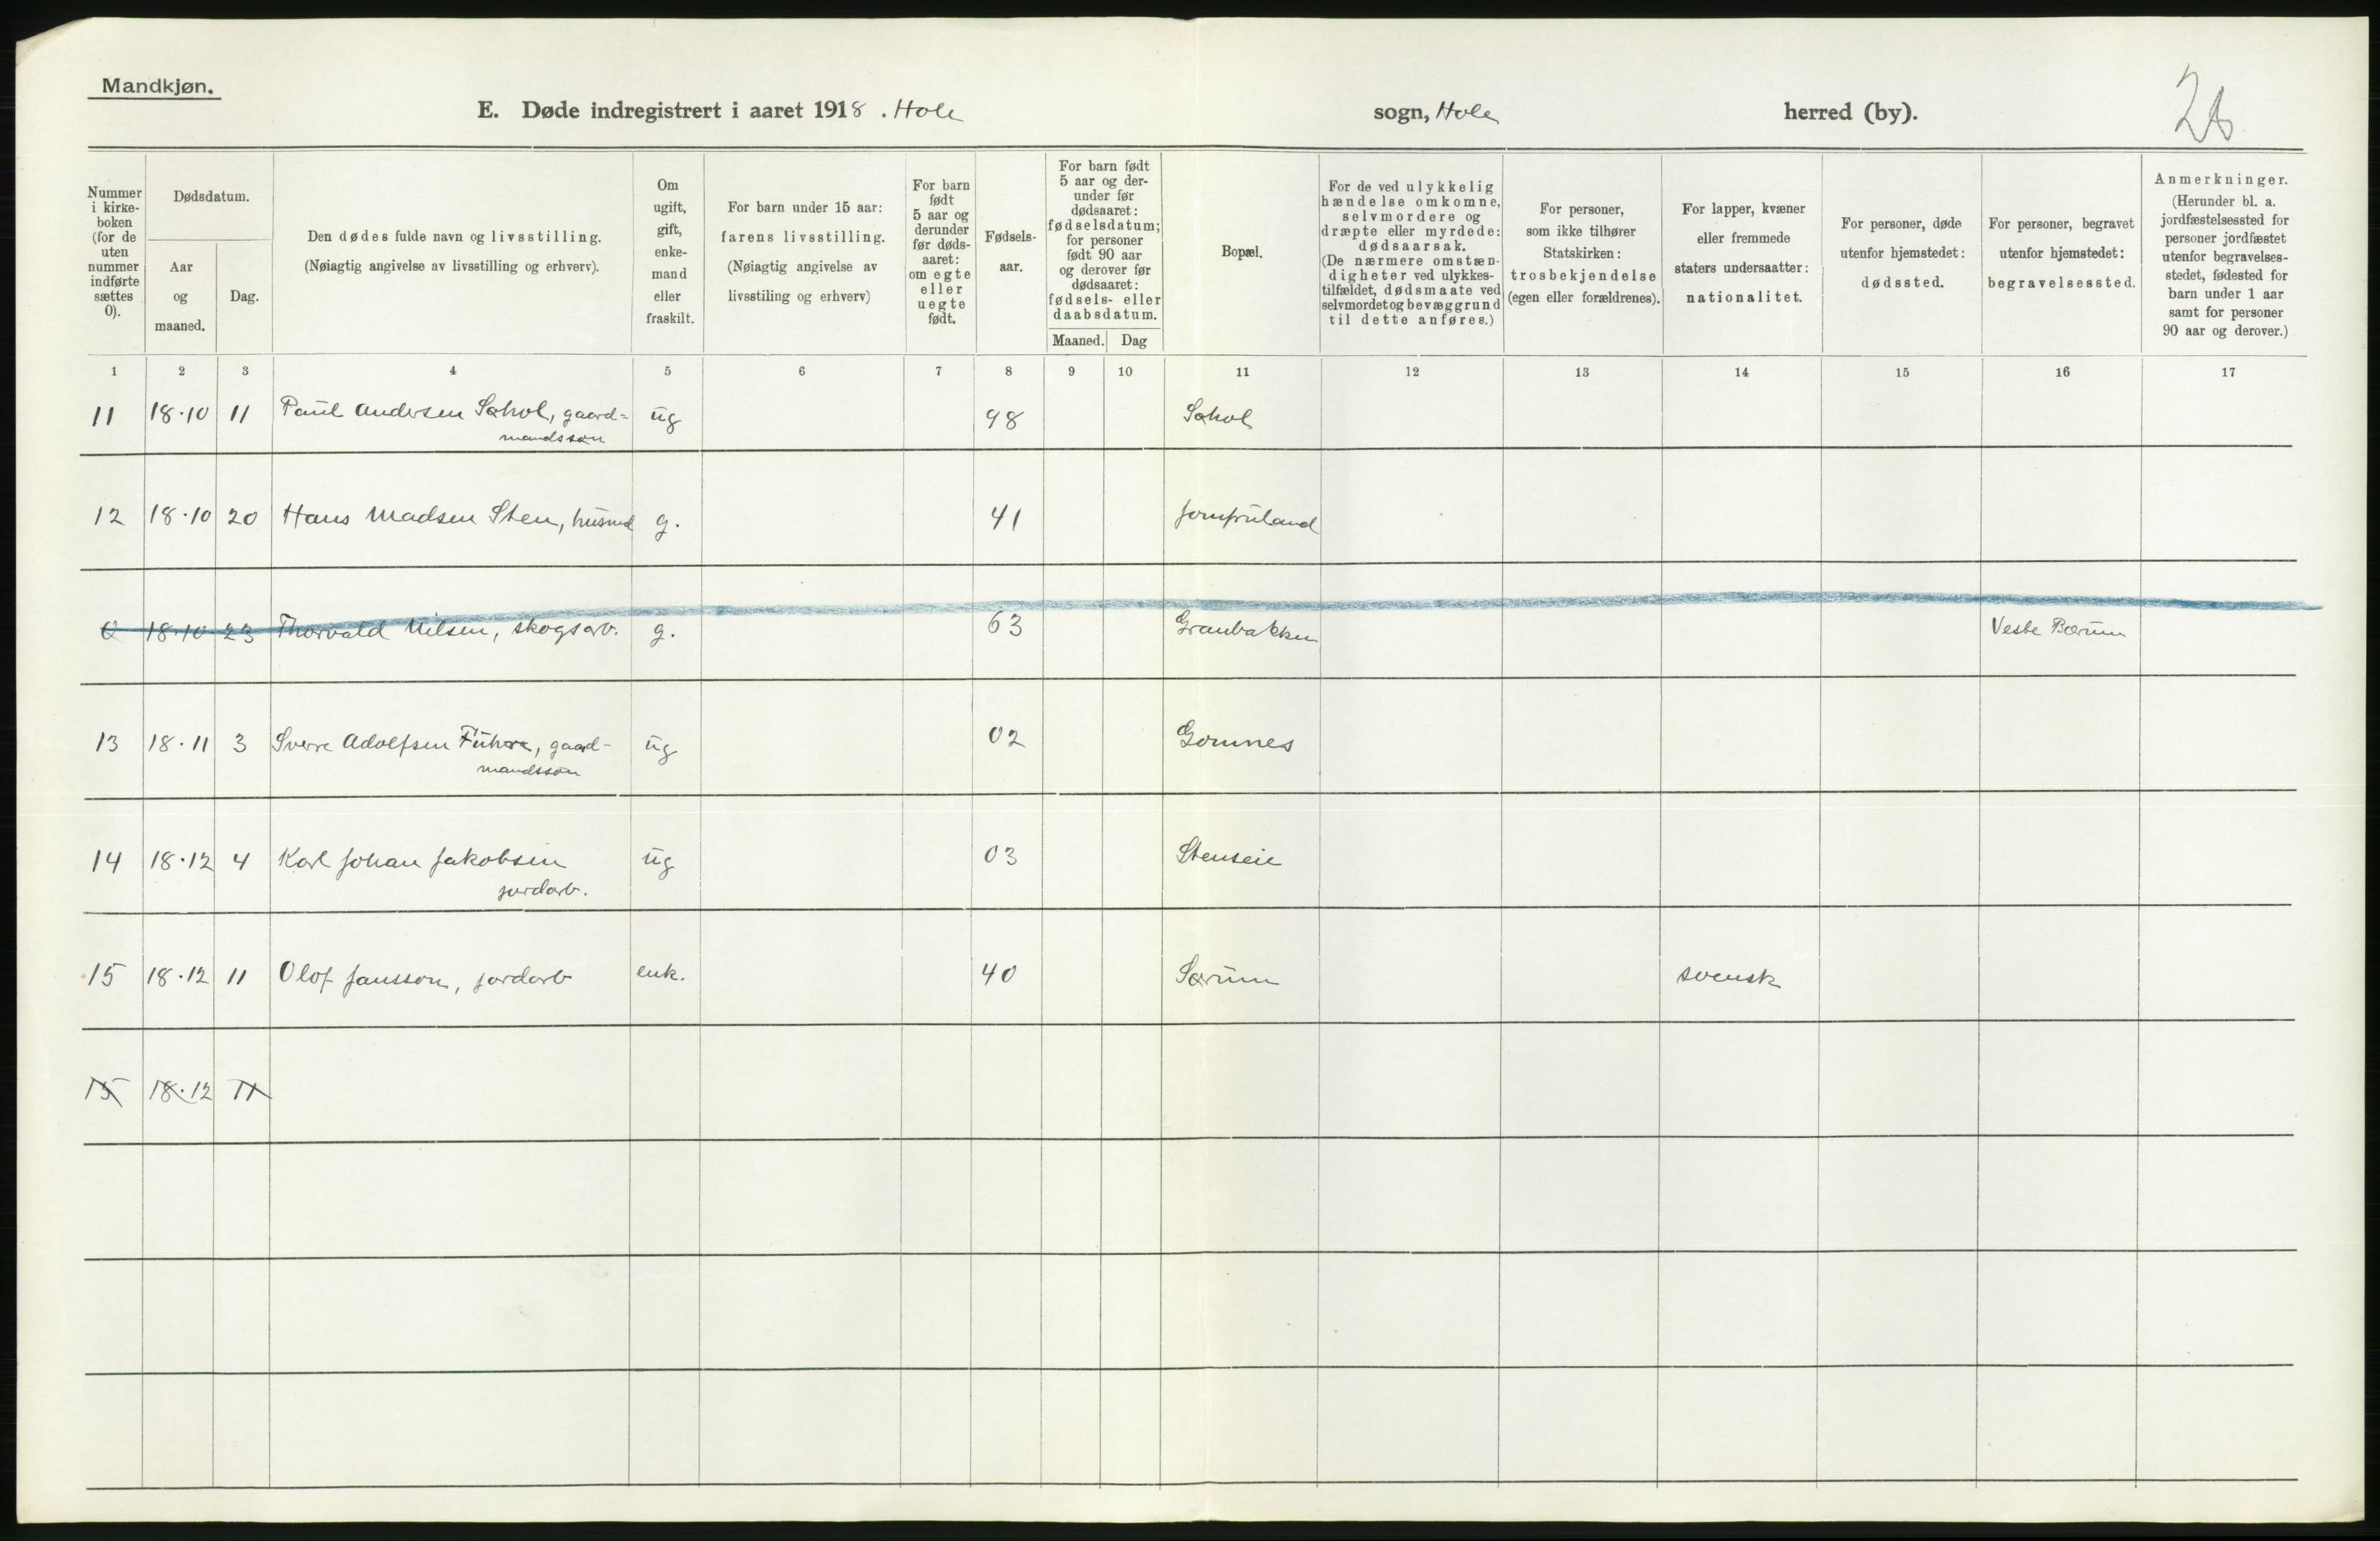 Mandkjøn.
E. Døde indregistrert i aaret 1918. Hole sogn, Hole herred (by).
Nummer i kirke-boken (for de uten nummer indførte sættes 0).
Dødsdatum.
Aar og maaned.
Dag.
Den dødes fulde navn og livsstilling.
(Nøiagtig angivelse av livsstilling og erhverv).
Om ugift, gift, enke-mand eller fraskilt.
For barn under 15 aar: farens livsstilling.
(Nøiagtig angivelse av livsstiling og erhverv)
For barn født 5 aar og derunder før døds-aaret: om egte eller uegte født.
Fødsels-aar.
For barn født 5 aar og der-under før dødsaaret: fødselsdatum; for personer født 90 aar og derover før dødsaaret: fødsels- eller daabsdatum.
Maaned. Dag
Bopæl.
For de ved ulykkelig hændelse omkomne, selvmordere og dræpte eller myrdede: dødsaarsak.
(De nærmere omstæn-digheter ved ulykkes-tilfældet, dødsmaate ved selvmordet og bevæggrund til dette anføres.)
For personer, som ikke tilhører Statskirken: trosbekjendelse (egen eller forældrenes).
For lapper, kvæner eller fremmede staters undersaatter: nationalitet.
For personer, døde utenfor hjemstedet: dødssted.
For personer, begravet utenfor hjemstedet: begravelsessted.
Anmerkninger.
(Herunder bl. a. jordfæstelsessted for personer jordfæstet utenfor begravelses-stedet, fødested for barn under 1 aar samt for personer 90 aar og derover.)
1 2 3 4 5 6 7 8 9 10 11 12 13 14 15 16 17
11 18.10 11 Paul Andersen Søhol, gaard= ug 98 Søhol
mandssøn
12 18.10 20 Hans Madsen Sten, husmd g. 41 Jomfruland
0 18.10 23 Thorvald Nilsen, skogsarb. g. 63 Granbakken Vestre Bærum
13 18.11 3 Sverre Adolfsen Fjuhere, gaard- ug 02 Gomnes
mandssøn
14 18.12 4 Karl Johan Jakobsen ug 03 Stenseie
jordarb.
15 18.12 11 Olof Jansson, jordarb enk. 40 Sørum svensk
15 18.12 11